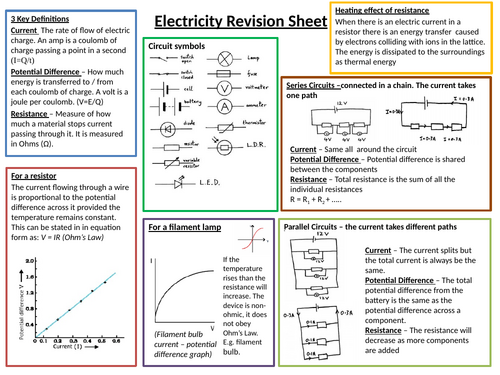 Electricity Revision Sheet
3 Key Definitions
Current The rate of flow of electric
charge. An amp is a coulomb of
charge passing a point in a second
(I=Q/t)
Potential Difference – How much
energy is transferred to / from
each coulomb of charge. A volt is a
joule per coulomb. (V=E/Q)
Resistance – Measure of how
much a material stops current
passing through it. It is measured
in Ohms (Ω).
Circuit symbols
switch open
Lamp
switch closed
fuse
cell
voltmeter
battery
ammeter
diode
thermistor
resistor
L.D.R.
variable resistor
L.E.D.
Heating effect of resistance
When there is an electric current in a
resistor there is an energy transfer caused
by electrons colliding with ions in the lattice.
The energy is dissipated to the surroundings
as thermal energy
Series Circuits –connected in a chain. The current takes
one path
12V
4V 4V 4V
Current – Same all around the circuit
Potential Difference – Potential difference is shared
between the components
Resistance – Total resistance is the sum of all the
individual resistances
R = R1 + R2 + .....
For a resistor
The current flowing through a wire
is proportional to the potential
difference across it provided the
temperature remains constant.
This can be stated in in equation
form as: V = IR (Ohm's Law)
Potential difference V
2.0
1.6
1.2
0.8
0.4
0 0.1 0.2 0.3 0.4 0.5 0.6
Current (I)
For a filament lamp
I
V
If the
temperature
rises than the
resistance
will increase.
The device is
non-ohmic, it
does not obey
Ohm's Law.
E.g. filament
bulb.
(Filament bulb
current – potential
difference graph)
Parallel Circuits – the current takes different paths
12V
Current – The current splits but
the total current is always be the
same.
Potential Difference – The total
potential difference from the
battery is the same as the
potential difference across a
component.
Resistance – The resistance will
decrease as more components
are added